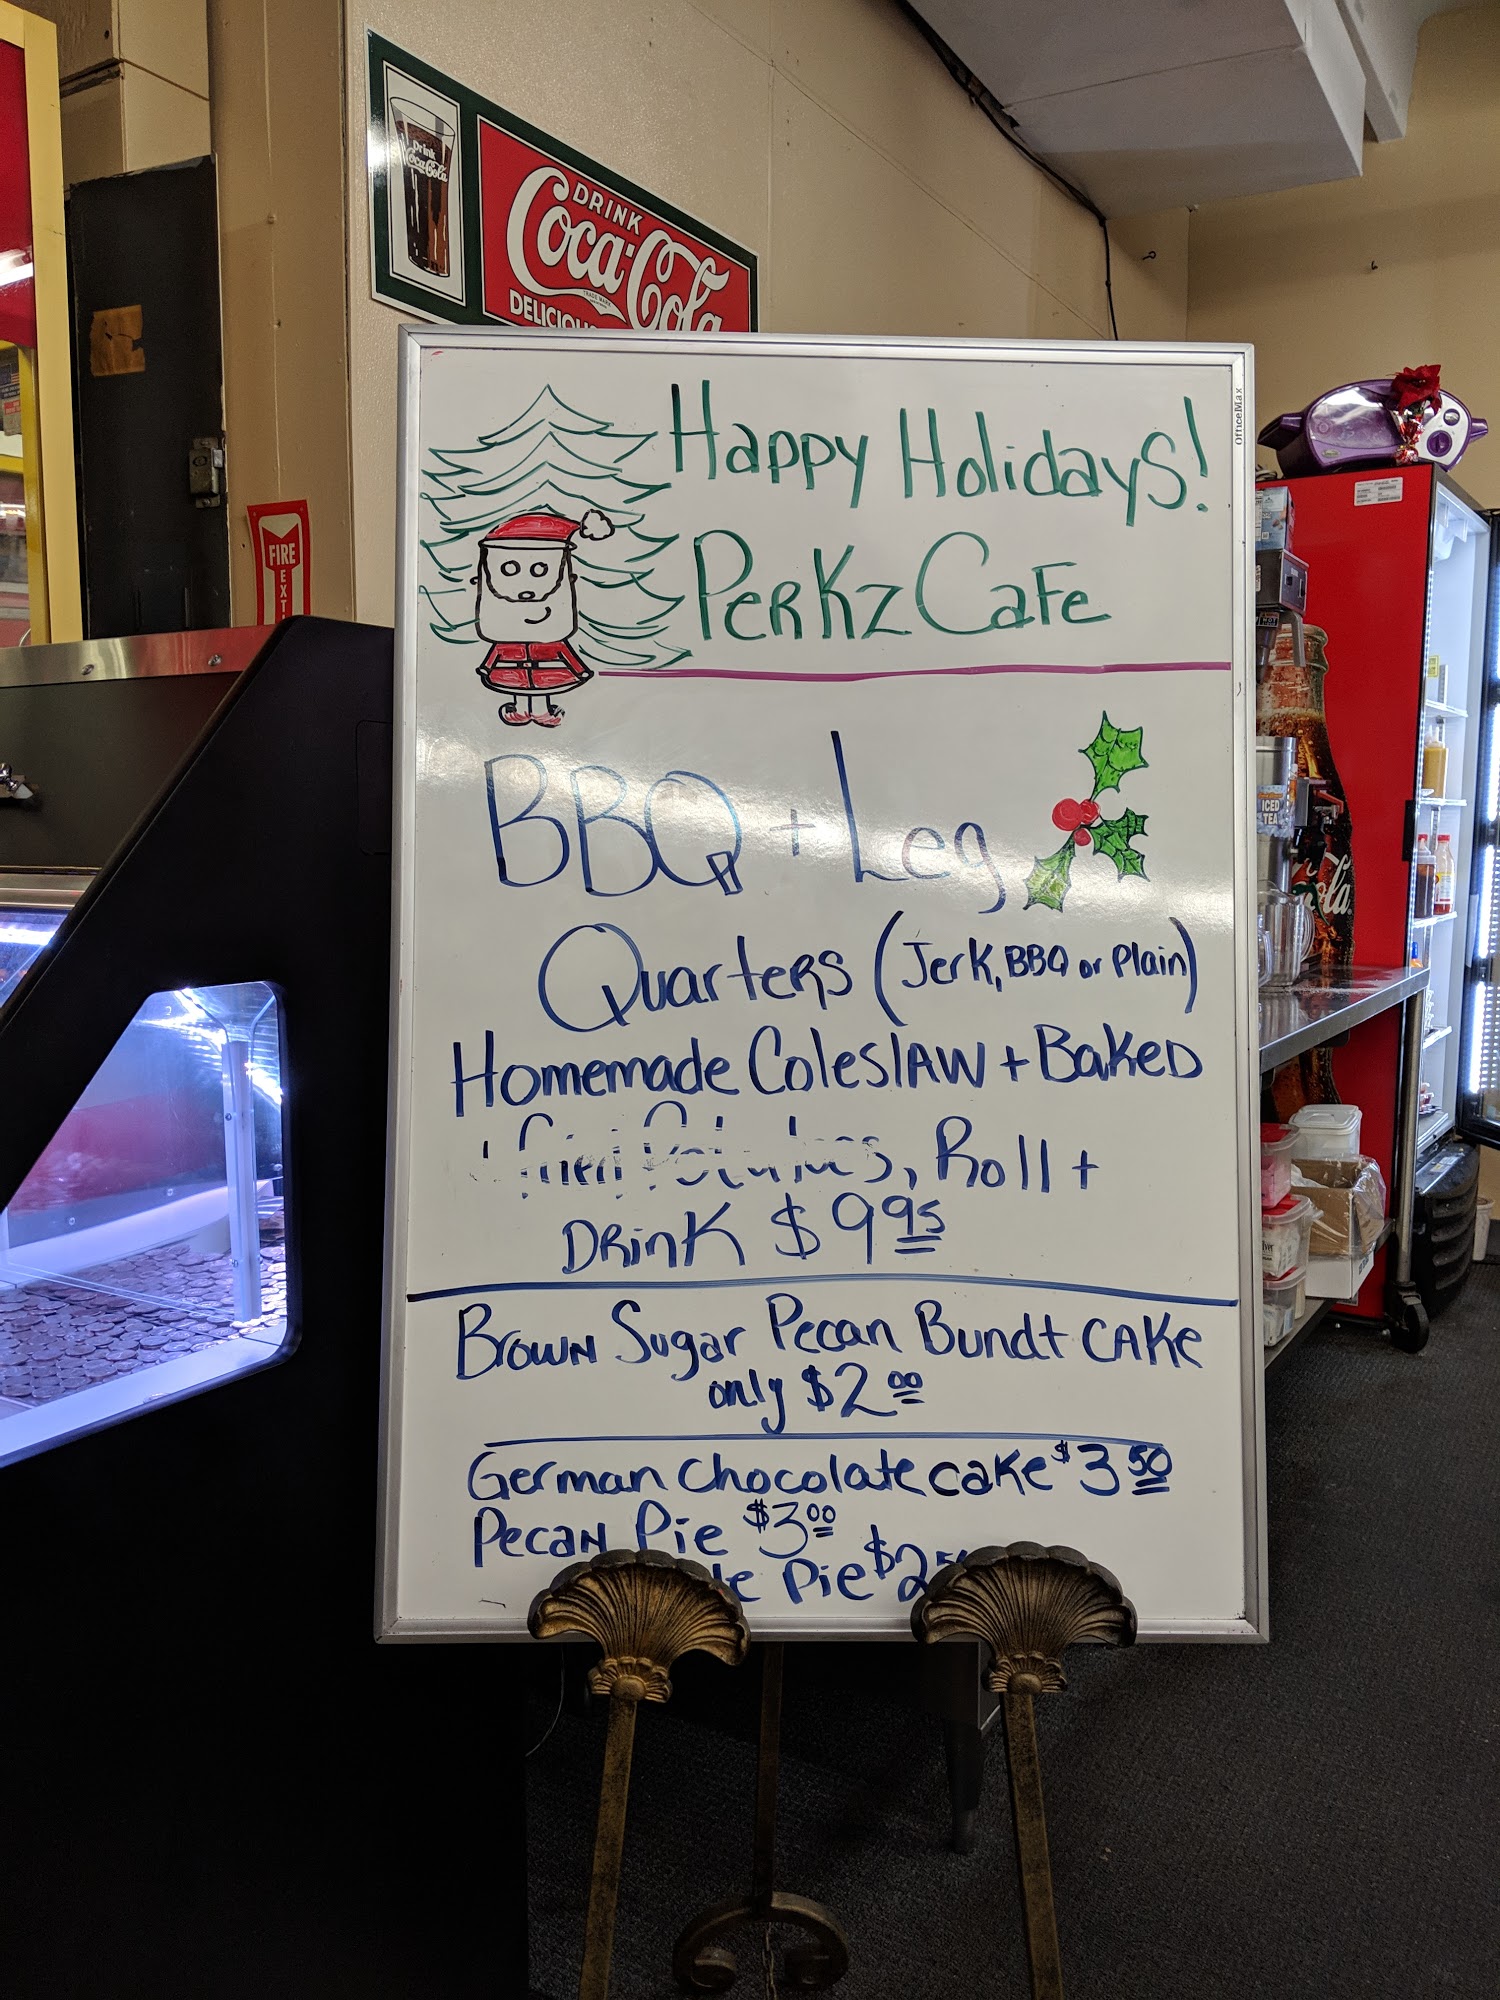 Drink
Coca-Cola
DRINK
Coca-Cola
TRADE MARK
DELICIOUS
OfficeMax
Happy Holidays!
PERKZ CaFe
FIRE
EXT
BBQ + Leg
Quarters (Jerk, BBQ or Plain)
Homemade Coleslaw + Baked
Potatoes, Roll +
DRinK $9.95
Brown Sugar Pecan Bundt CAKe
only $2.00
German Chocolate cake $3.50
Pecan Pie $3.00
Pie $2
ICED
TEA